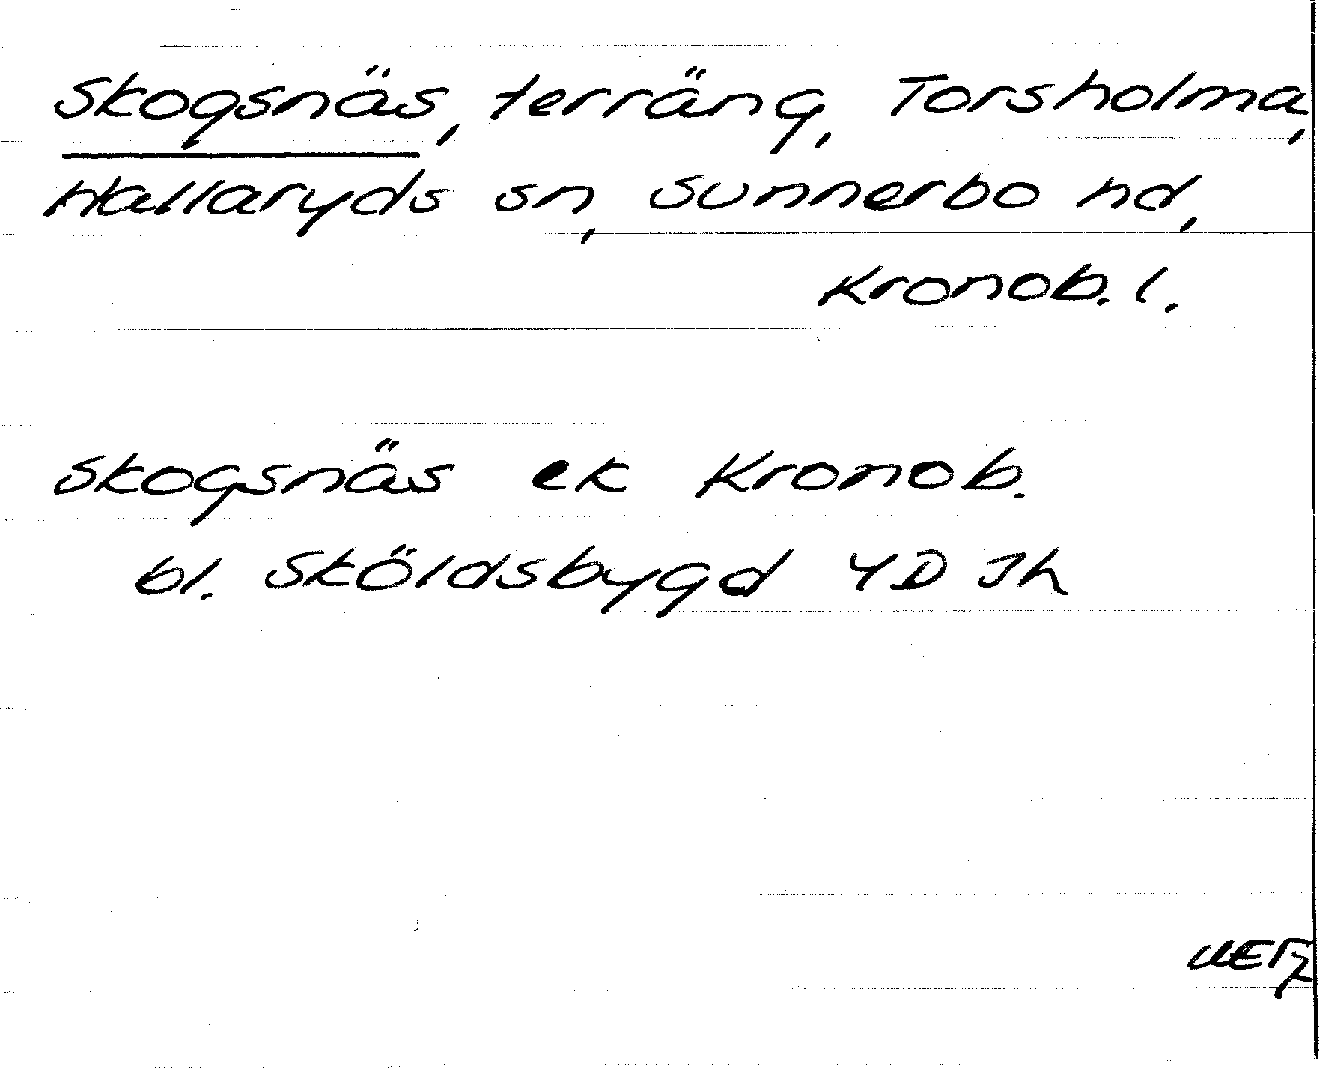 Skogsnäs, terräng, Torsholma,
Hallaryds sn, Sunnerbo hd,
Kronob. l.
Skogsnäs ek Kronob.
bl. Sköldsbygd 4D Jh